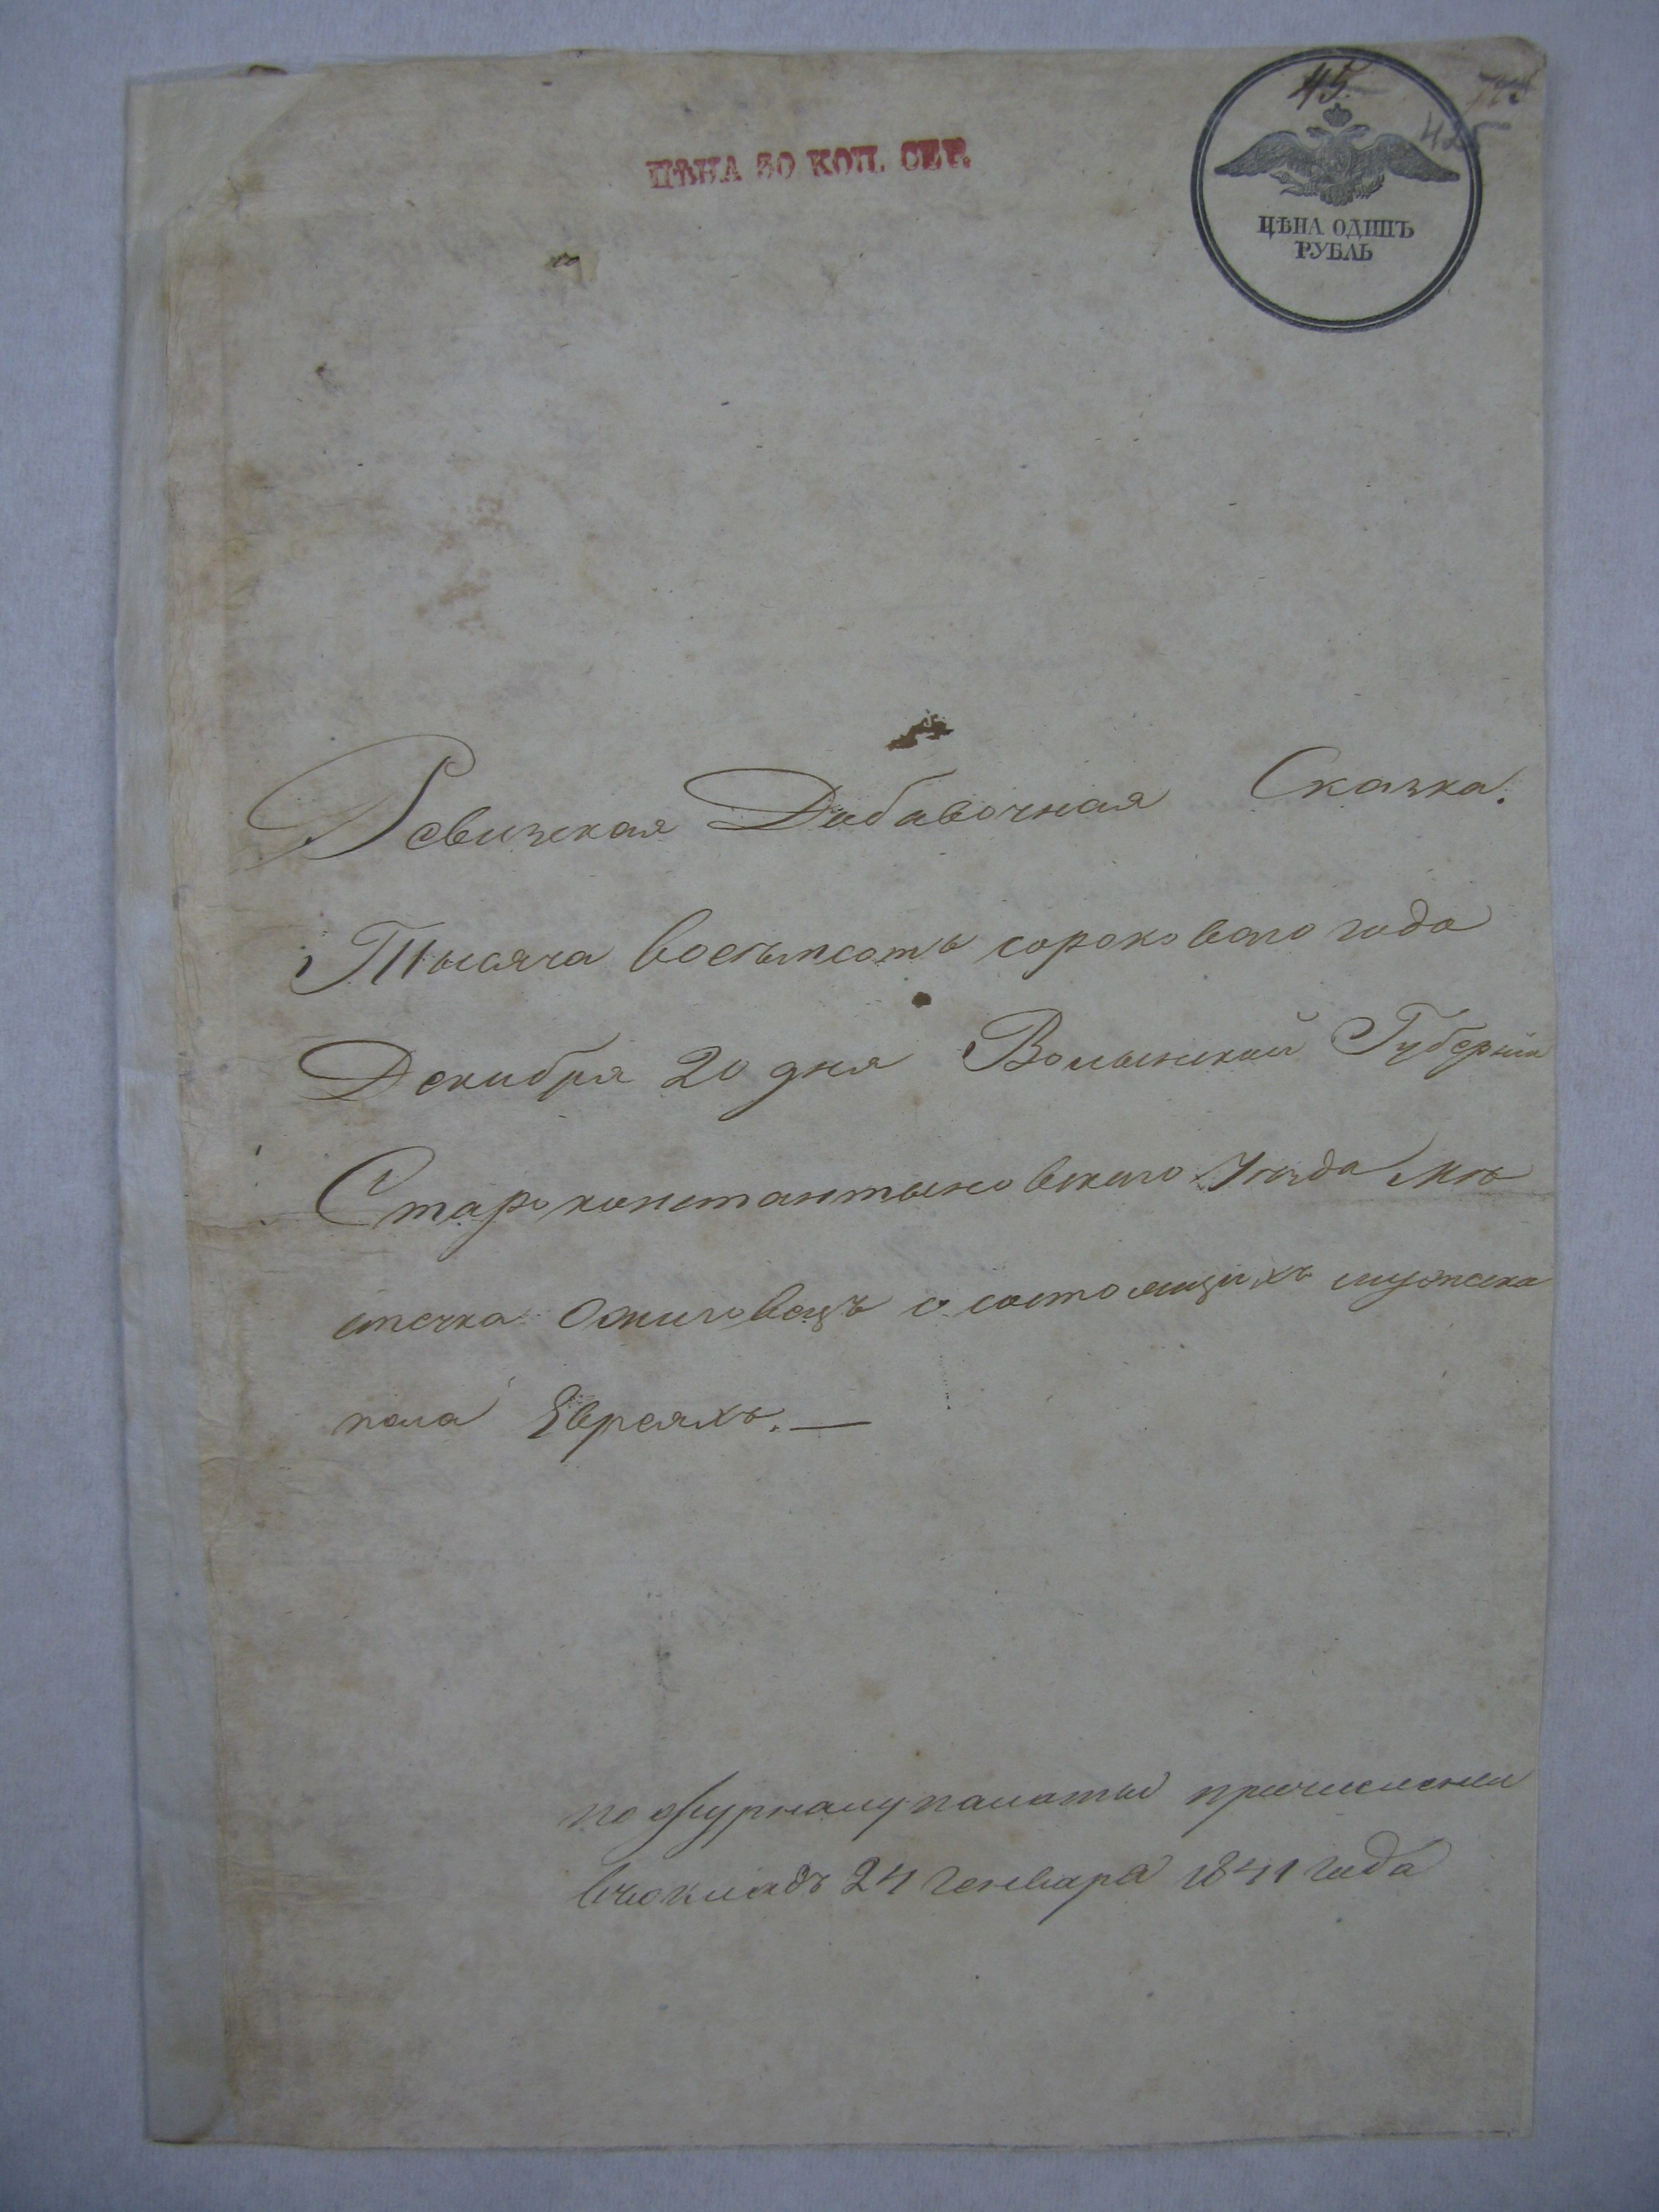 45.
425
ЦѢНА 30 КОП. СЕР.
ЦѢНА ОДИНЪ
РУБЛЬ
Ревизская Добавочная Сказка.
Тысяча восемъсотъ сороковаго года
Декабря 20 дня Волынской Губерніи
Староконстантыновскаго Уѣзда мѣ
стечка Ожиговецъ о состоящихъ мужеска
пола Евреяхъ. —
по журналу палаты причислены
вчокладъ 24 Генваря 1841 года